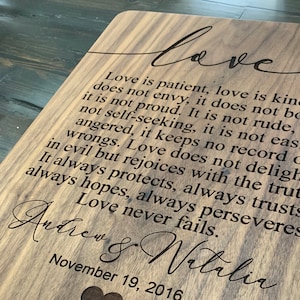 love
Love is patient, love is kin
does not envy, it does not bo
it is not proud. It is not rude,
not self-seeking, it is not eas
angered, it keeps no record
wrongs. Love does not deligh
in evil but rejoices with the trut
It always protects, always trust
always hopes, always perseveres
Love never fails.
Andrew & Natalia
November 19, 2016